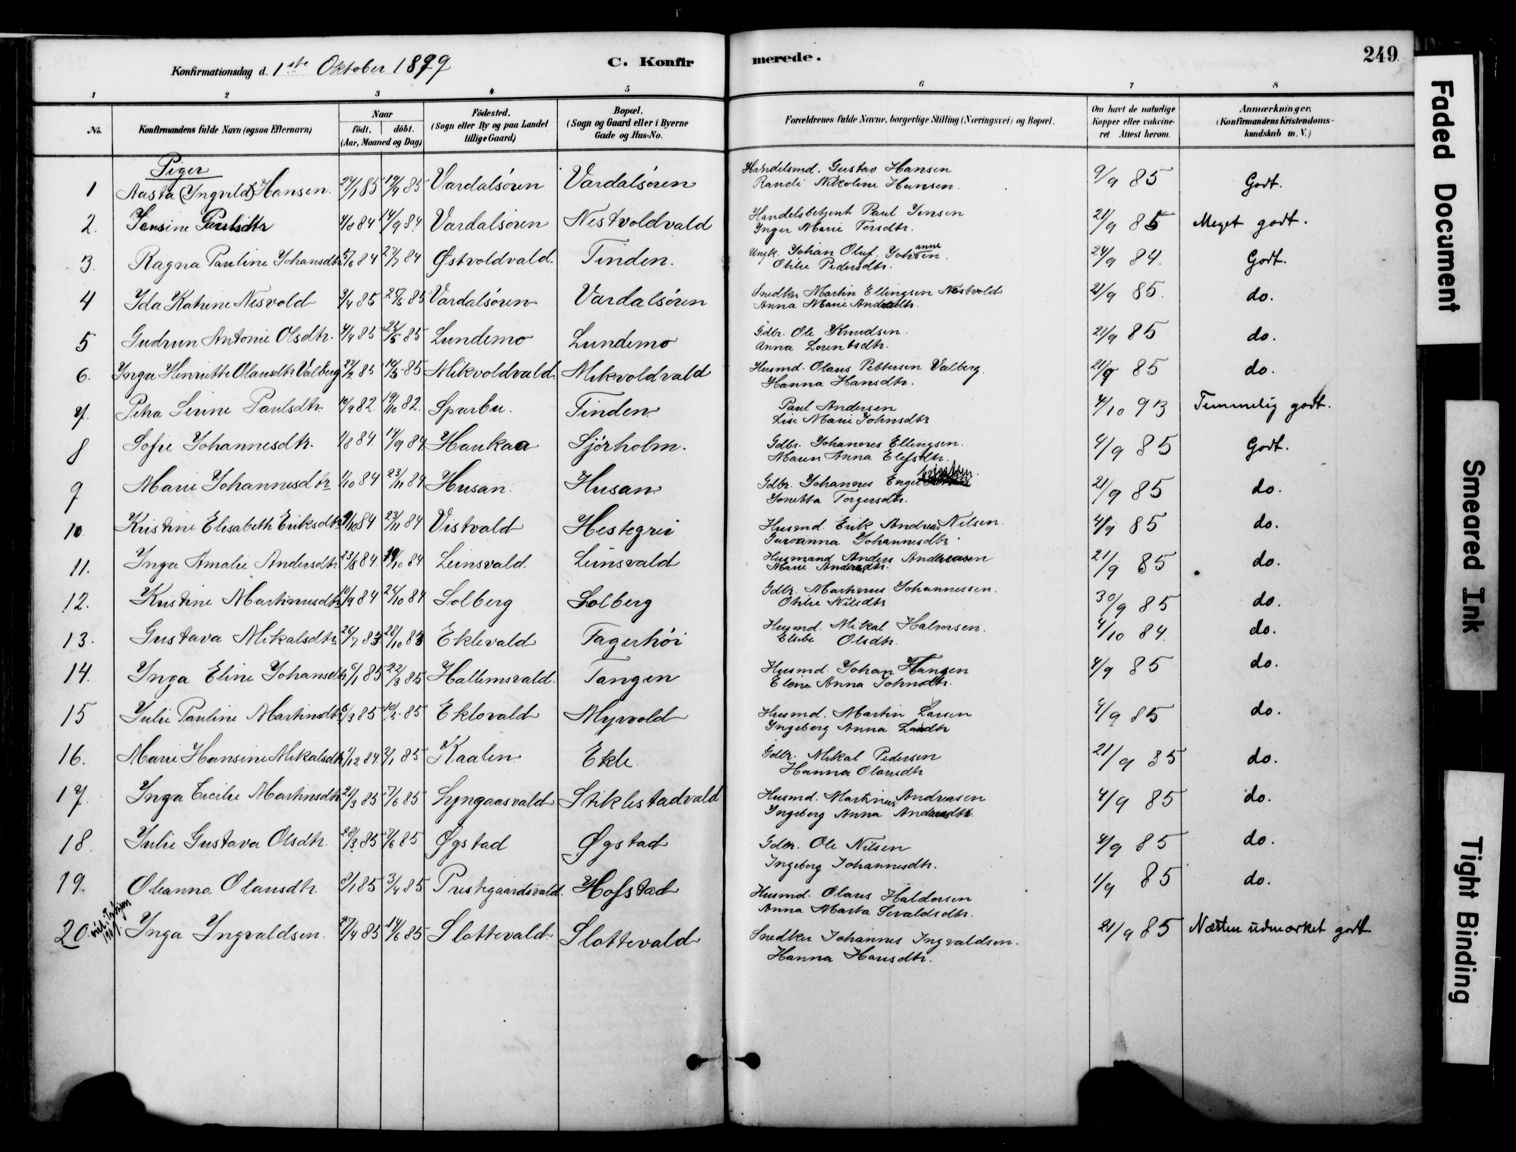 Konfirmationsdag d. 1ste Oktober 1899
C. Konfirmerede.
249.
1 2 3 4 5 6 7 8
No. Konfirmandens fulde Navn (ogsaa Efternavn) Naar født. døbt. (Aar, Maaned og Dag) Fødested. (Sogn eller By og paa Landet tillige Gaard) Bopæl. (Sogn og Gaard eller i Byerne Gade og Hus-No. Forældrenes fulde Navne, borgerlige Stilling (Næringsvei) og Bopæl. Om havt de naturlige Kopper eller vaccineret Attest herom. Anmærkninger. (Konfirmandens Kristendomskundskab m. V.)
Piger
1 Aasta (Ingvild) Hansen 85 85 Vardalsøren Vardalsøren Handelsmd. Gustav Hansen 9/9 85 Godt.
Randi Nikoline Hansen
2. Jensine Paulsdtr 84 14/9 84 Vardalsøren Nestvoldvald Handelsbetjent Paul Jensen 21/9 85 Meget godt.
Inger Marie Torsdtr.
3. Ragna Pauline Johansdtr 84 27/7 84 Østvoldvald Tinden. Ungk. Johan Oluf Johansen 24/9 84. Godt.
Otilie Pedersdtr.
4 Ida Katrine Nesvold 85 85 Vardalsøren Vardalsøren Snedker Martin Ellingsen Nestvold 21/9 85. do.
Anna Marie Andersdtr.
5 Gudrun Antonie Olsdtr. 4/4 85 85 Lundemo Lundemo Gdbr. Ole Knudsen 21/9 85 do.
Anna Lorentsdtr.
6. Inga Henriette Olausdtr Valberg 85 85 Mikvoldvald Mikvoldvald Husmd. Olaus Pettersen Valberg. 21/9 85 do.
Hanna Hansdtr.
7. Petra Serine Paulsdtr. 82 82. Sparbu. Tinden Paul Andersen 4/10 93 Temmelig godt.
Lise Marie Johnsdtr
8 Sofie Johannesdtr. 1/8 84 14/9 84 Haukaa Sjørholm. Gdbr. Johannes Ellingsen. 4/9 85 Godt.
Maren Anna Elefsdtr.
9 Marie Johannesdtr 1/10 84 23/11 84 Husan. Husan Gdbr. Johannes 21/9 85 do.
Jonetta Torgersdtr.
10 Kristine Elisabeth Eriksdtr 84 23/11 84 Vestvald Hestegrei Husmd Erik Andreas Nilsen. 4/9 85 do.
Guroanna Johannesdtr
11. Inga Amalie Andersdtr 23/8 84 19/10 84 Leinsvald Leinsvald Husmand Anders Andreasen 21/9 85 do.
Marie Andersdtr.
12. Kristine Martinusdtr 84 84 Solberg Solberg Gdbr. Martinus Johannessen. 30/9 85 do.
Otilie Nilsdtr
13. Gustava Mikalsdtr 24/7 83 83 Eklevald Tagerhøi Husmd. Mikal Halvorsen. 4/10 84. do.
Elsebe Olsdtr.
14. Inga Eline Johansdtr 85 22/3 85 Hallemsvald Tangen Husmd. Johan Hansen 4/9 85 do.
Elena Anna Johnsdtr.
15 Julie Pauline Martinsdtr 85 85 Eklovald Myrvold Husmd. Martin Larsen 4/9 85 do.
Ingeborg Anna Larsdtr
16. Marie Hansine Mikalsdtr 84 85 Kaalen Ekle. Gdbr. Mikal Pedersen 21/9 85 do.
Hanna Olausdtr
17. Inga Cecilie Martinsdtr 21/3 85 7/6 85 Lyngaasvald Stiklestadvald Husmd. Martinus Andreasen 4/9 85 do.
Ingeborg Anna Andersdtr
18. Julie Gustava Olsdtr. 20/3 85 7/6 85 Øgstad Øgstad Gdbr. Ole Nilsen 4/9 85 do.
Ingeborg Johannesdtr.
19. Oleanna Olausdtr 85 3/4 85 Prestegaardsvald. Hofstad Husmd. Olaus Haldorsen 1/9 85 do.
Anna Marta Sevaldsdtr.
20. Inga Ingvaldsen. 27/4 85 14/6 85 Slottevald. Slottevald Snedker Johannes Ingvaldsen. 21/9 85 Næsten udmærket godt
Hanna Hansdtr.
Faded Document
Smeared Ink
Tight Binding